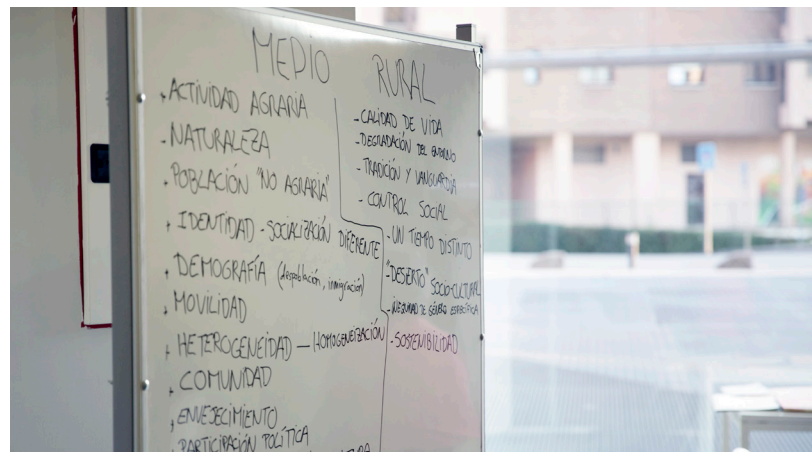 MEDIO RURAL
- ACTIVIDAD AGRARIA
- NATURALEZA
- POBLACIÓN "NO AGRARIA"
- IDENTIDAD - SOCIALIZACIÓN DIFERENTE
- DEMOGRAFÍA (despoblación, inmigración)
- MOVILIDAD
- HETEROGENEIDAD — HOMOGENEIZACIÓN
- COMUNIDAD
- ENVEJECIMIENTO
- PARTICIPACIÓN POLÍTICA
- CALIDAD DE VIDA
- DEGRADACIÓN DEL ENTORNO
- TRADICIÓN Y VANGUARDIA
- CONTROL SOCIAL
- UN TIEMPO DISTINTO
- "DESIERTO" SOCIO-CULTURAL
- INEQUIDAD DE GÉNERO ESPECÍFICA
- SOSTENIBILIDAD